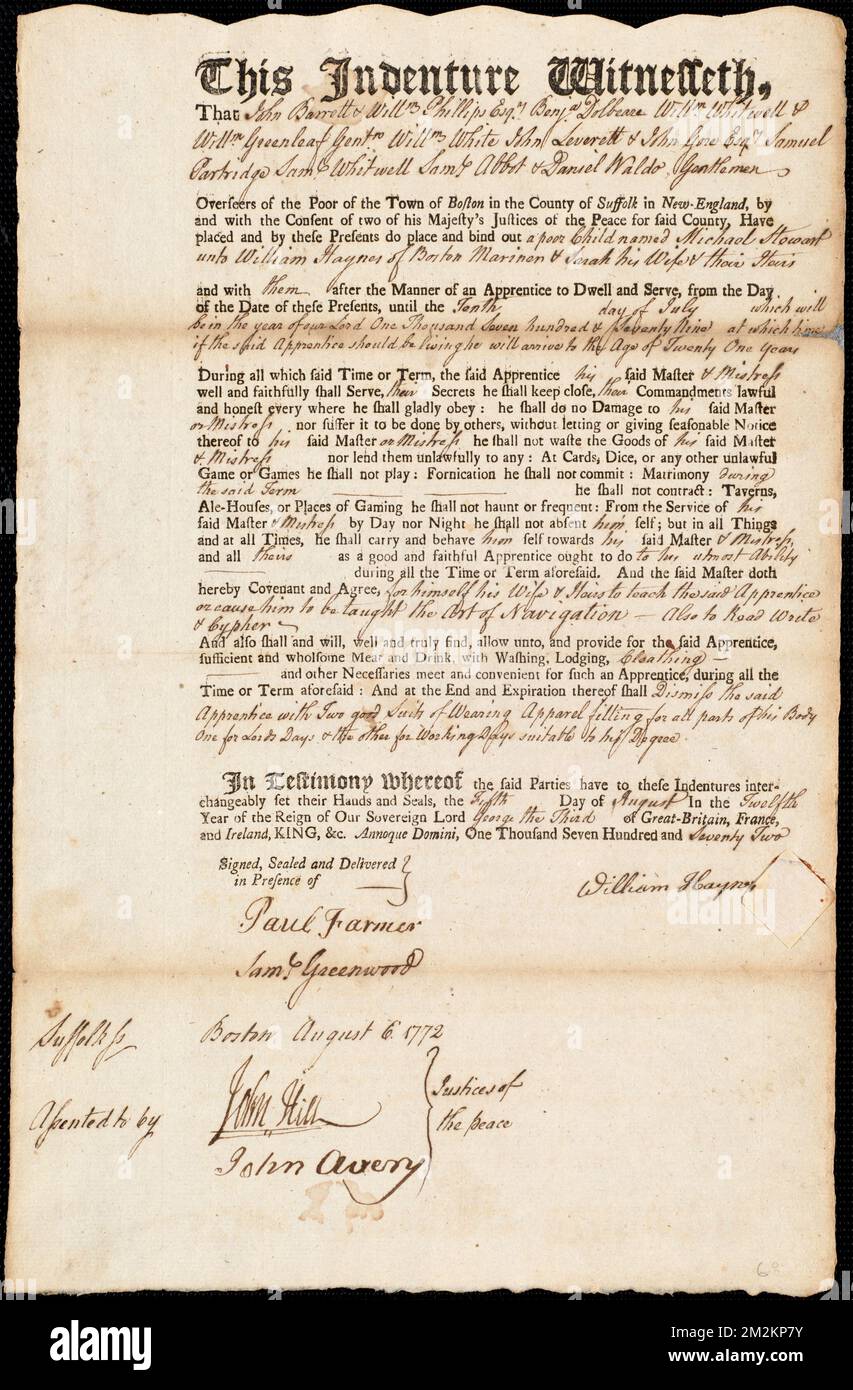 This Indenture Witnesseth,
That John Barrett & Willm Phillips Esqrs Benja Dolbeare Willm Whitwell &
Willm Greenleaf Gentn Willm White John Leverett & John Gore Esqr Samuel
Partridge Saml Whitwell Saml Abbot & Daniel Waldo Gentlemen
Overseers of the Poor of the Town of Boston in the County of Suffolk in New-England, by
and with the Consent of two of his Majesty's Justices of the Peace for said County, Have
placed and by these Presents do place and bind out a poor Child named Michael Stowart
unto William Haynes of Boston Mariner & Sarah his Wife & their Heirs
and with them after the Manner of an Apprentice to Dwell and Serve, from the Day
of the Date of these Presents, until the Tenth day of July which will
be in the year of our Lord One Thousand Seven hundred & Seventy Nine at which time
if the said Apprentice should be living he will arrive to the Age of Twenty One Years
During all which said Time or Term, the said Apprentice his said Master & Mistress
well and faithfully shall Serve, their Secrets he shall keep close, their Commandments lawful
and honest every where he shall gladly obey: he shall do no Damage to his said Master
or Mistress nor suffer it to be done by others, without letting or giving seasonable Notice
thereof to his said Master or Mistress he shall not waste the Goods of his said Master
& Mistress nor lend them unlawfully to any: At Cards, Dice, or any other unlawful
Game or Games he shall not play: Fornication he shall not commit: Matrimony during
the said Term he shall not contract: Taverns,
Ale-Houses, or Places of Gaming he shall not haunt or frequent: From the Service of his
said Master & Mistress by Day nor Night he shall not absent him self; but in all Things
and at all Times, he shall carry and behave him self towards his said Master & Mistress,
and all theirs as a good and faithful Apprentice ought to do to his utmost Ability
during all the Time or Term aforesaid. And the said Master doth
hereby Covenant and Agree, for himself his Wife & Heirs to teach the said Apprentice
or cause him to be taught the Art of Navigation — Also to Read Write
& Cypher
And also shall and will, well and truly find, allow unto, and provide for the said Apprentice,
sufficient and wholsome Meat and Drink, with Washing, Lodging, Cloathing —
and other Necessaries meet and convenient for such an Apprentice, during all the
Time or Term aforesaid: And at the End and Expiration thereof shall Dismiss the said
Apprentice with Two good Suits of Wearing Apparel fitting for all parts of his Body
One for Lords Days & the other for Working Days suitable to his Degree.
In Testimony whereof the said Parties have to these Indentures inter-
changeably set their Hands and Seals, the Fifth Day of August In the Twelfth
Year of the Reign of Our Sovereign Lord George the Third of Great-Britain, France,
and Ireland, KING, &c. Annoque Domini, One Thousand Seven Hundred and Seventy Two
Signed, Sealed and Delivered
in Presence of
William Haynes
Paul Farmer
Saml Greenwood
Suffolk ss Boston August 6. 1772
Assented to by
John Hill
John Avery
Justices of
the peace
alamy
Image ID: 2M2KP7Y
www.alamy.com